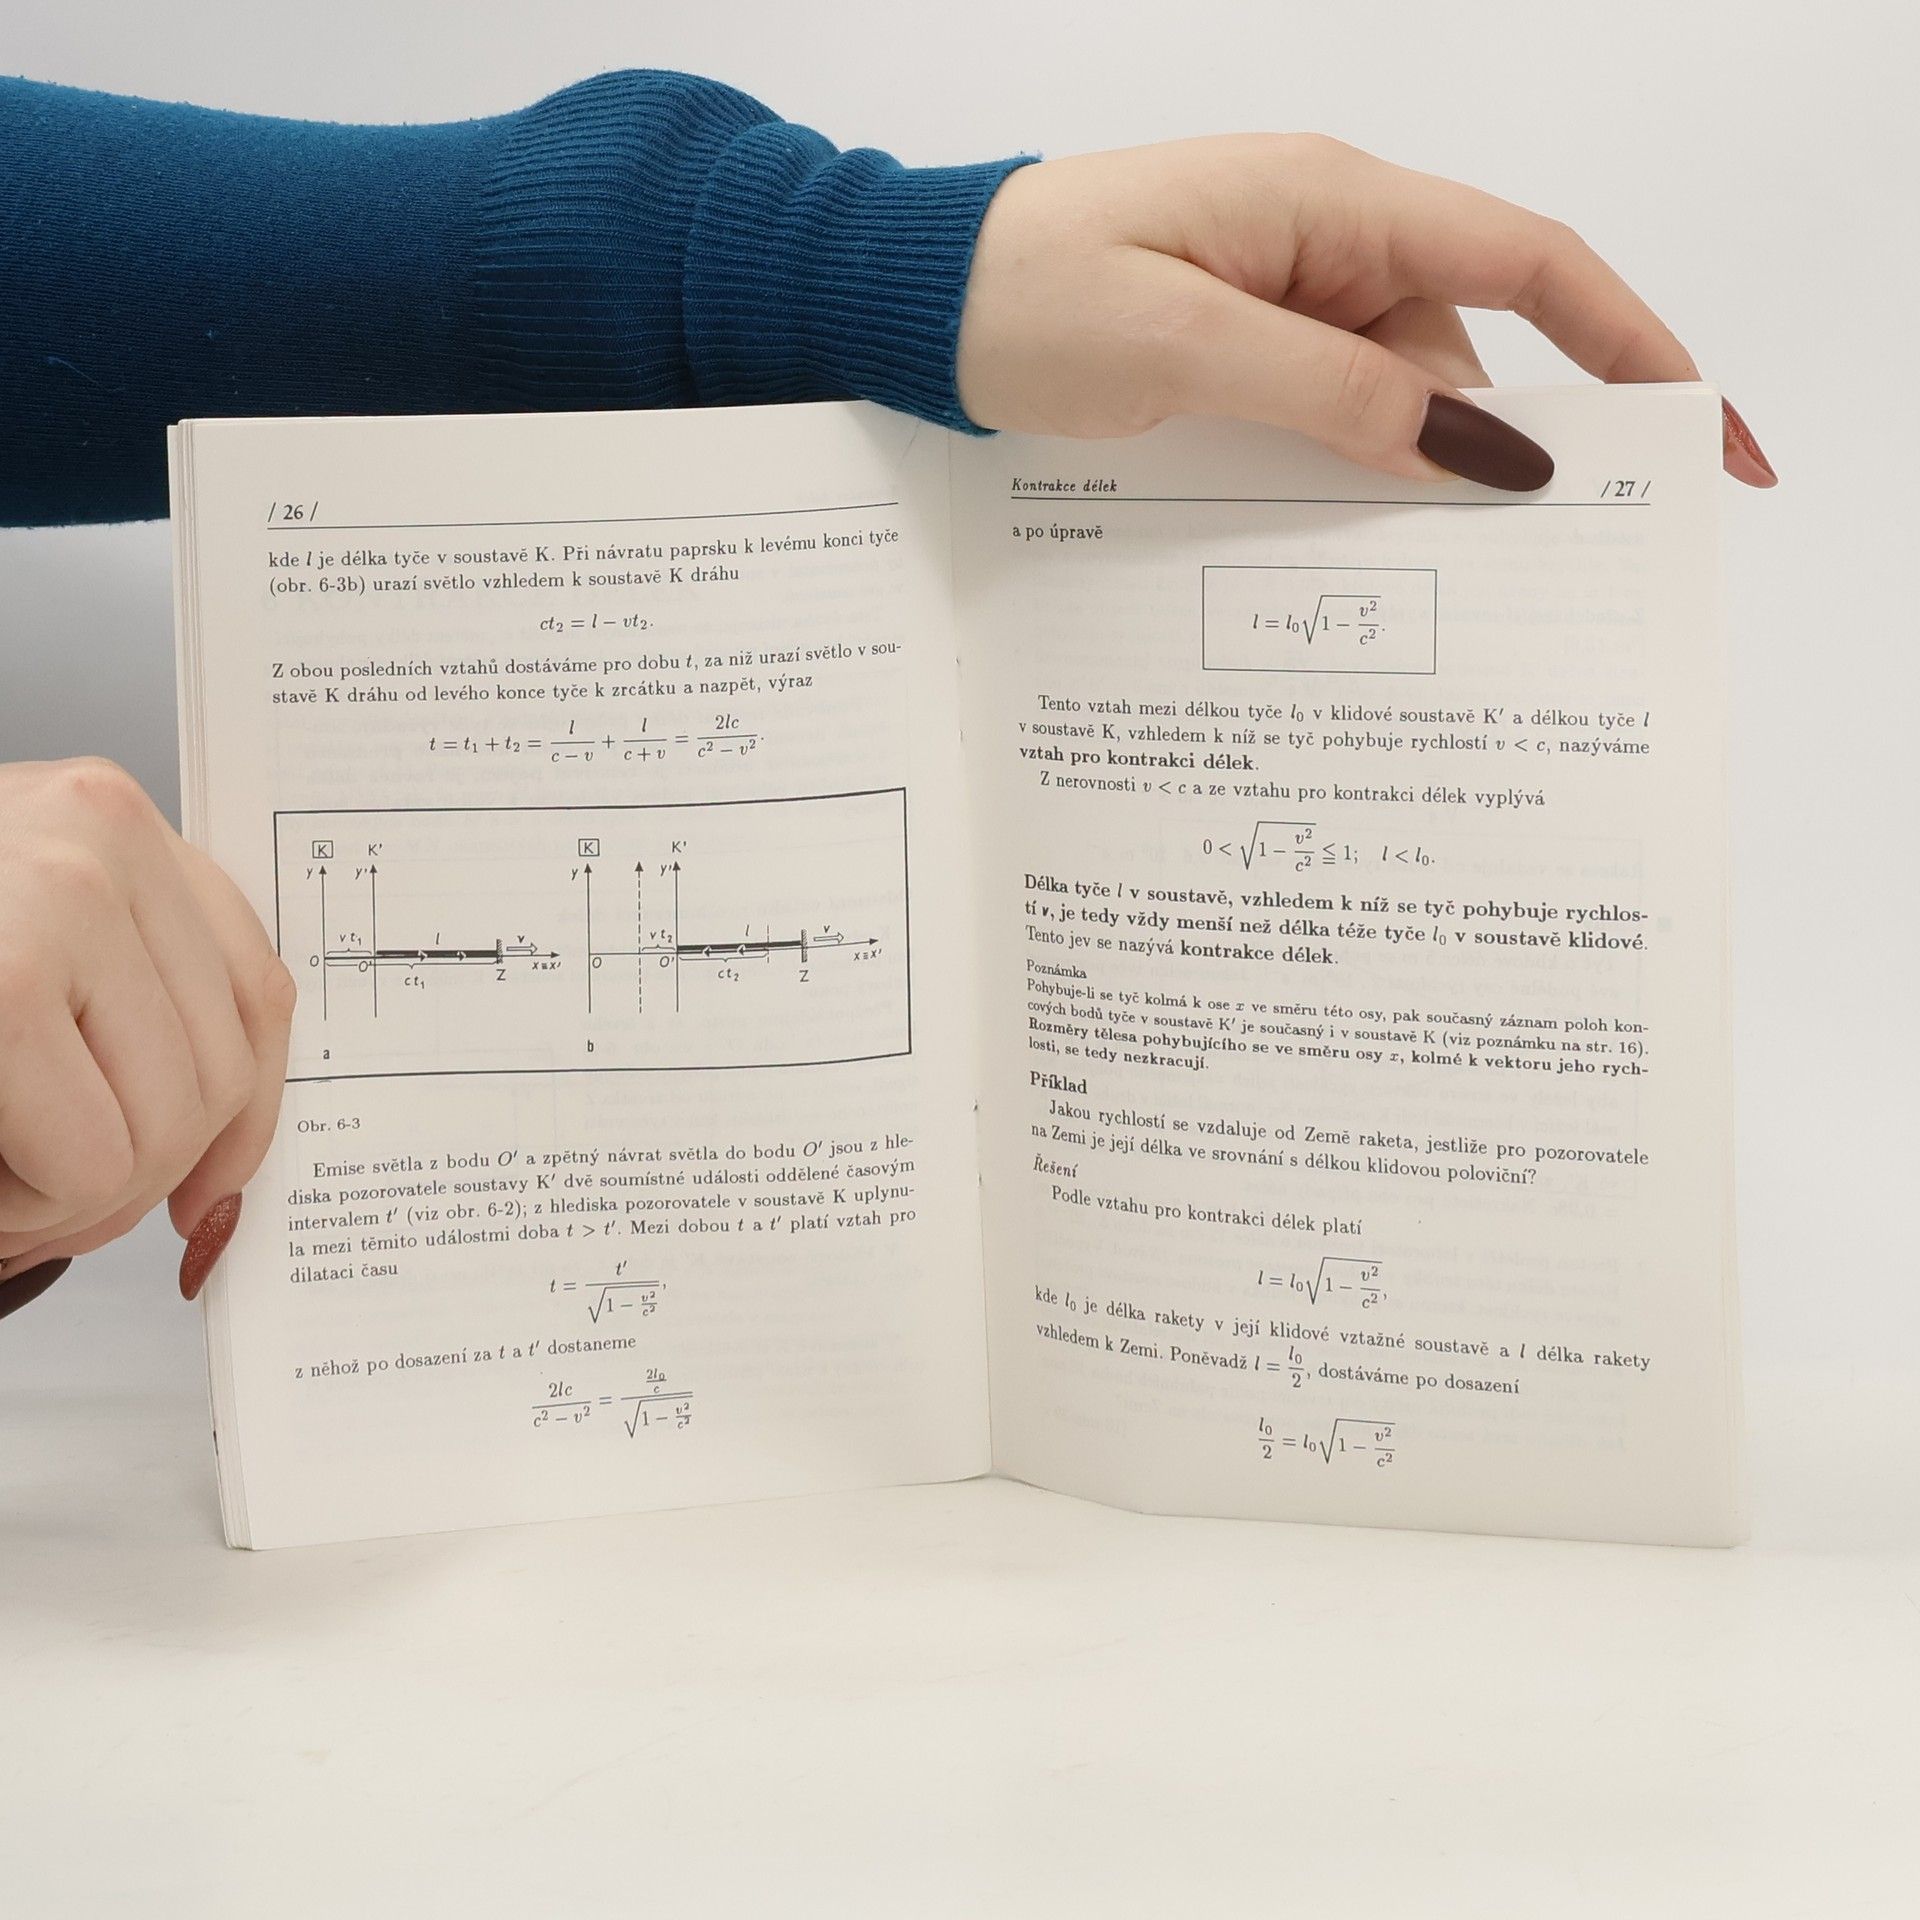 / 26 /
kde l je délka tyče v soustavě K. Při návratu paprsku k levému konci tyče
(obr. 6-3b) urazí světlo vzhledem k soustavě K dráhu
ct₂ = l − vt₂.
Z obou posledních vztahů dostáváme pro dobu t, za niž urazí světlo v sou-
stavě K dráhu od levého konce tyče k zrcátku a nazpět, výraz
t = t₁ + t₂ = l/(c − v) + l/(c + v) = 2lc/(c² − v²).
K K' K K'
y y' y y'
v t₁ l v v t₂ l v
O O' ct₁ Z x≡x' O O' ct₂ Z x≡x'
a b
Obr. 6-3
Emise světla z bodu O′ a zpětný návrat světla do bodu O′ jsou z hle-
diska pozorovatele soustavy K′ dvě soumístné události oddělené časovým
intervalem t′ (viz obr. 6-2); z hlediska pozorovatele v soustavě K uplynu-
la mezi těmito událostmi doba t > t′. Mezi dobou t a t′ platí vztah pro
dilataci času
t = t′/√(1 − v²/c²),
z něhož po dosazení za t a t′ dostaneme
2lc/(c² − v²) = (2l₀/c)/√(1 − v²/c²)
Kontrakce délek / 27 /
a po úpravě
l = l₀√(1 − v²/c²).
Tento vztah mezi délkou tyče l₀ v klidové soustavě K′ a délkou tyče l
v soustavě K, vzhledem k níž se tyč pohybuje rychlostí v < c, nazýváme
vztah pro kontrakci délek.
Z nerovnosti v < c a ze vztahu pro kontrakci délek vyplývá
0 < √(1 − v²/c²) ≦ 1; l < l₀.
Délka tyče l v soustavě, vzhledem k níž se tyč pohybuje rychlos-
tí v, je tedy vždy menší než délka téže tyče l₀ v soustavě klidové.
Tento jev se nazývá kontrakce délek.
Poznámka
Pohybuje-li se tyč kolmá k ose x ve směru této osy, pak současný záznam poloh kon-
cových bodů tyče v soustavě K′ je současný i v soustavě K (viz poznámku na str. 16).
Rozměry tělesa pohybujícího se ve směru osy x, kolmé k vektoru jeho rych-
losti, se tedy nezkracují.
Příklad
Jakou rychlostí se vzdaluje od Země raketa, jestliže pro pozorovatele
na Zemi je její délka ve srovnání s délkou klidovou poloviční?
Řešení
Podle vztahu pro kontrakci délek platí
l = l₀√(1 − v²/c²),
kde l₀ je délka rakety v její klidové vztažné soustavě a l délka rakety
vzhledem k Zemi. Poněvadž l = l₀/2, dostáváme po dosazení
l₀/2 = l₀√(1 − v²/c²)